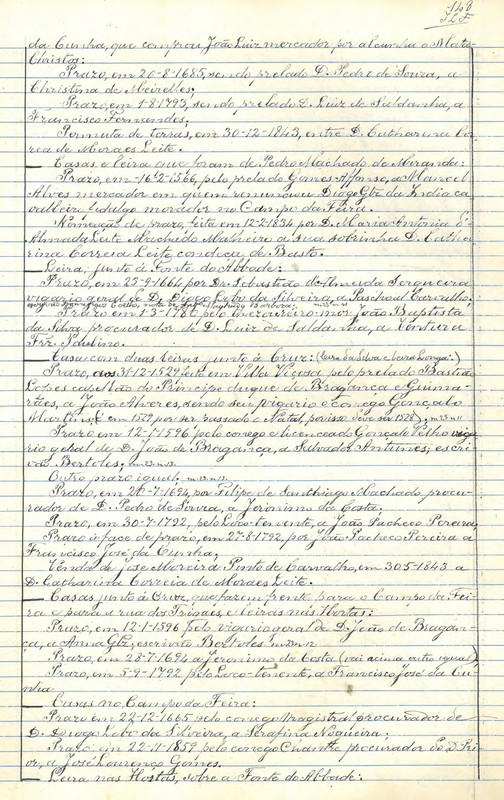 148
da Cunha, que comprou João Luiz mercador, por alcunha o Mata-
Christos:
Prazo, em 20-8-1685, sendo prelado D. Pedro de Souza, a
Christina de Meirelles;
Prazo, em 1-8-1793, sendo prelado D. Luiz de Saldanha, a
Francisco Fernandes;
Permuta de terras, em 30-12-1843, entre D. Catharina Cor-
rea de Moraes Leite.
— Casas e leira que foram de Pedro Machado de Miranda:
Prazo, em -16-2-1566, pelo prelado Gomes Affonso, a Manoel
Alves mercador em quem renunciou Diogo Glz da India ca-
valleiro fidalgo morador no Campo da Feira.
Nomeação de prazo, feita em 12-2-1834 por D. Maria Antonia d'
Almada Leite Machado Malheiro a sua sobrinha D. Catha-
rina Correa Leite condeca de Basto.
— Leira, junto á Fonte do Abbade:
Prazo, em 23-9-1661 por Dr. Sebastião d'Almeida Serqueira
vigario geral de D. Diogo Lobo da Silveira, a Paschoal Carvalho,
Prazo em 1-3-1786 pelo thezoureiro-mor João Baptista
da Silva procurador de D. Luiz de Saldanha, a Ventura
Frz. Paulino.
— Casa com duas leiras junto á Cruz: (leira da Silva e leira Longa:)
Prazo, aos 31-12-1524 feito em Villa Viçosa pelo prelado Bastião
Lopes capellão do Principe duque de Bragança e Guima-
rães, a João Alveres, sendo seu vigario o conego Gonçalo
Martins, é em 1529 por ser passado o Natal, por isso deve ser 1528); m 23 n 11
Prazo em 12-1-1596 pelo conego e licenceado Gonçalo Velho viga-
rio geral de D. João de Bragança, a Salvador Antunes; escri-
vão Bertoles; m 23 n 13.
Outro prazo igual; m 23 n 13.
Prazo, em 28-7-1694, por Filipe de Santhiago Machado procu-
rador de D. Pedro de Souza, a Jeronimo da Costa;
Prazo, em 30-7-1792, pelo Loco-tenente, a João Pacheco Pereira,
Prazo á face de prazo, em 27-8-1792, por João Pacheco Pereira a
Francisco José da Cunha;
Venda de José Moreira Pinto de Carvalho, em 30-5-1843 a
D. Catharina Correia de Moraes Leite.
— Casas junto á Cruz, que fazem frente para o Campo da Fei-
ra e para a rua dos Trigaes, e leiras nas Hortas:
Prazo, em 12-1-1596 pelo vigario geral de D. João de Bragan-
ça, a Anna Glz; escrivão Bertoles m 23 n 12
Prazo, em 28-7-1694 a Jeronimo da Costa (vai acima outro igual)
Prazo, em 5-9-1792 pelo Loco-tenente, a Francisco José da Cu-
nha
— Casas no Campo da Feira:
Prazo em 22-12-1665 pelo conego magistral procurador de
D. Diogo Lobo da Silveira, a Serafina Nogueira;
Prazo em 22-11-1859 pelo conego Chantre procurador do D. Pri-
or, a José Lourenço Gomes.
— Leira nas Hortas, sobre a Fonte do Abbade: